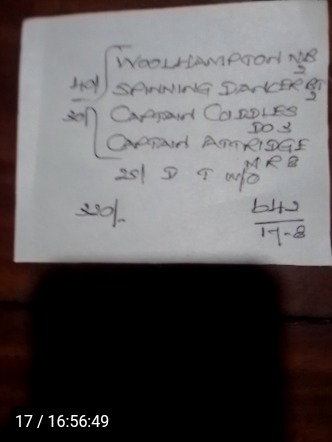 WOOLHAMPTON NB
2
40/ SPINNING DANCER BT
2
30/ CAPTAIN CUDDLES
DO 3
CAPTAIN ATTRIDGE
M R 8
25/ D T W/O
220/-
642
17-8
17 / 16:56:49